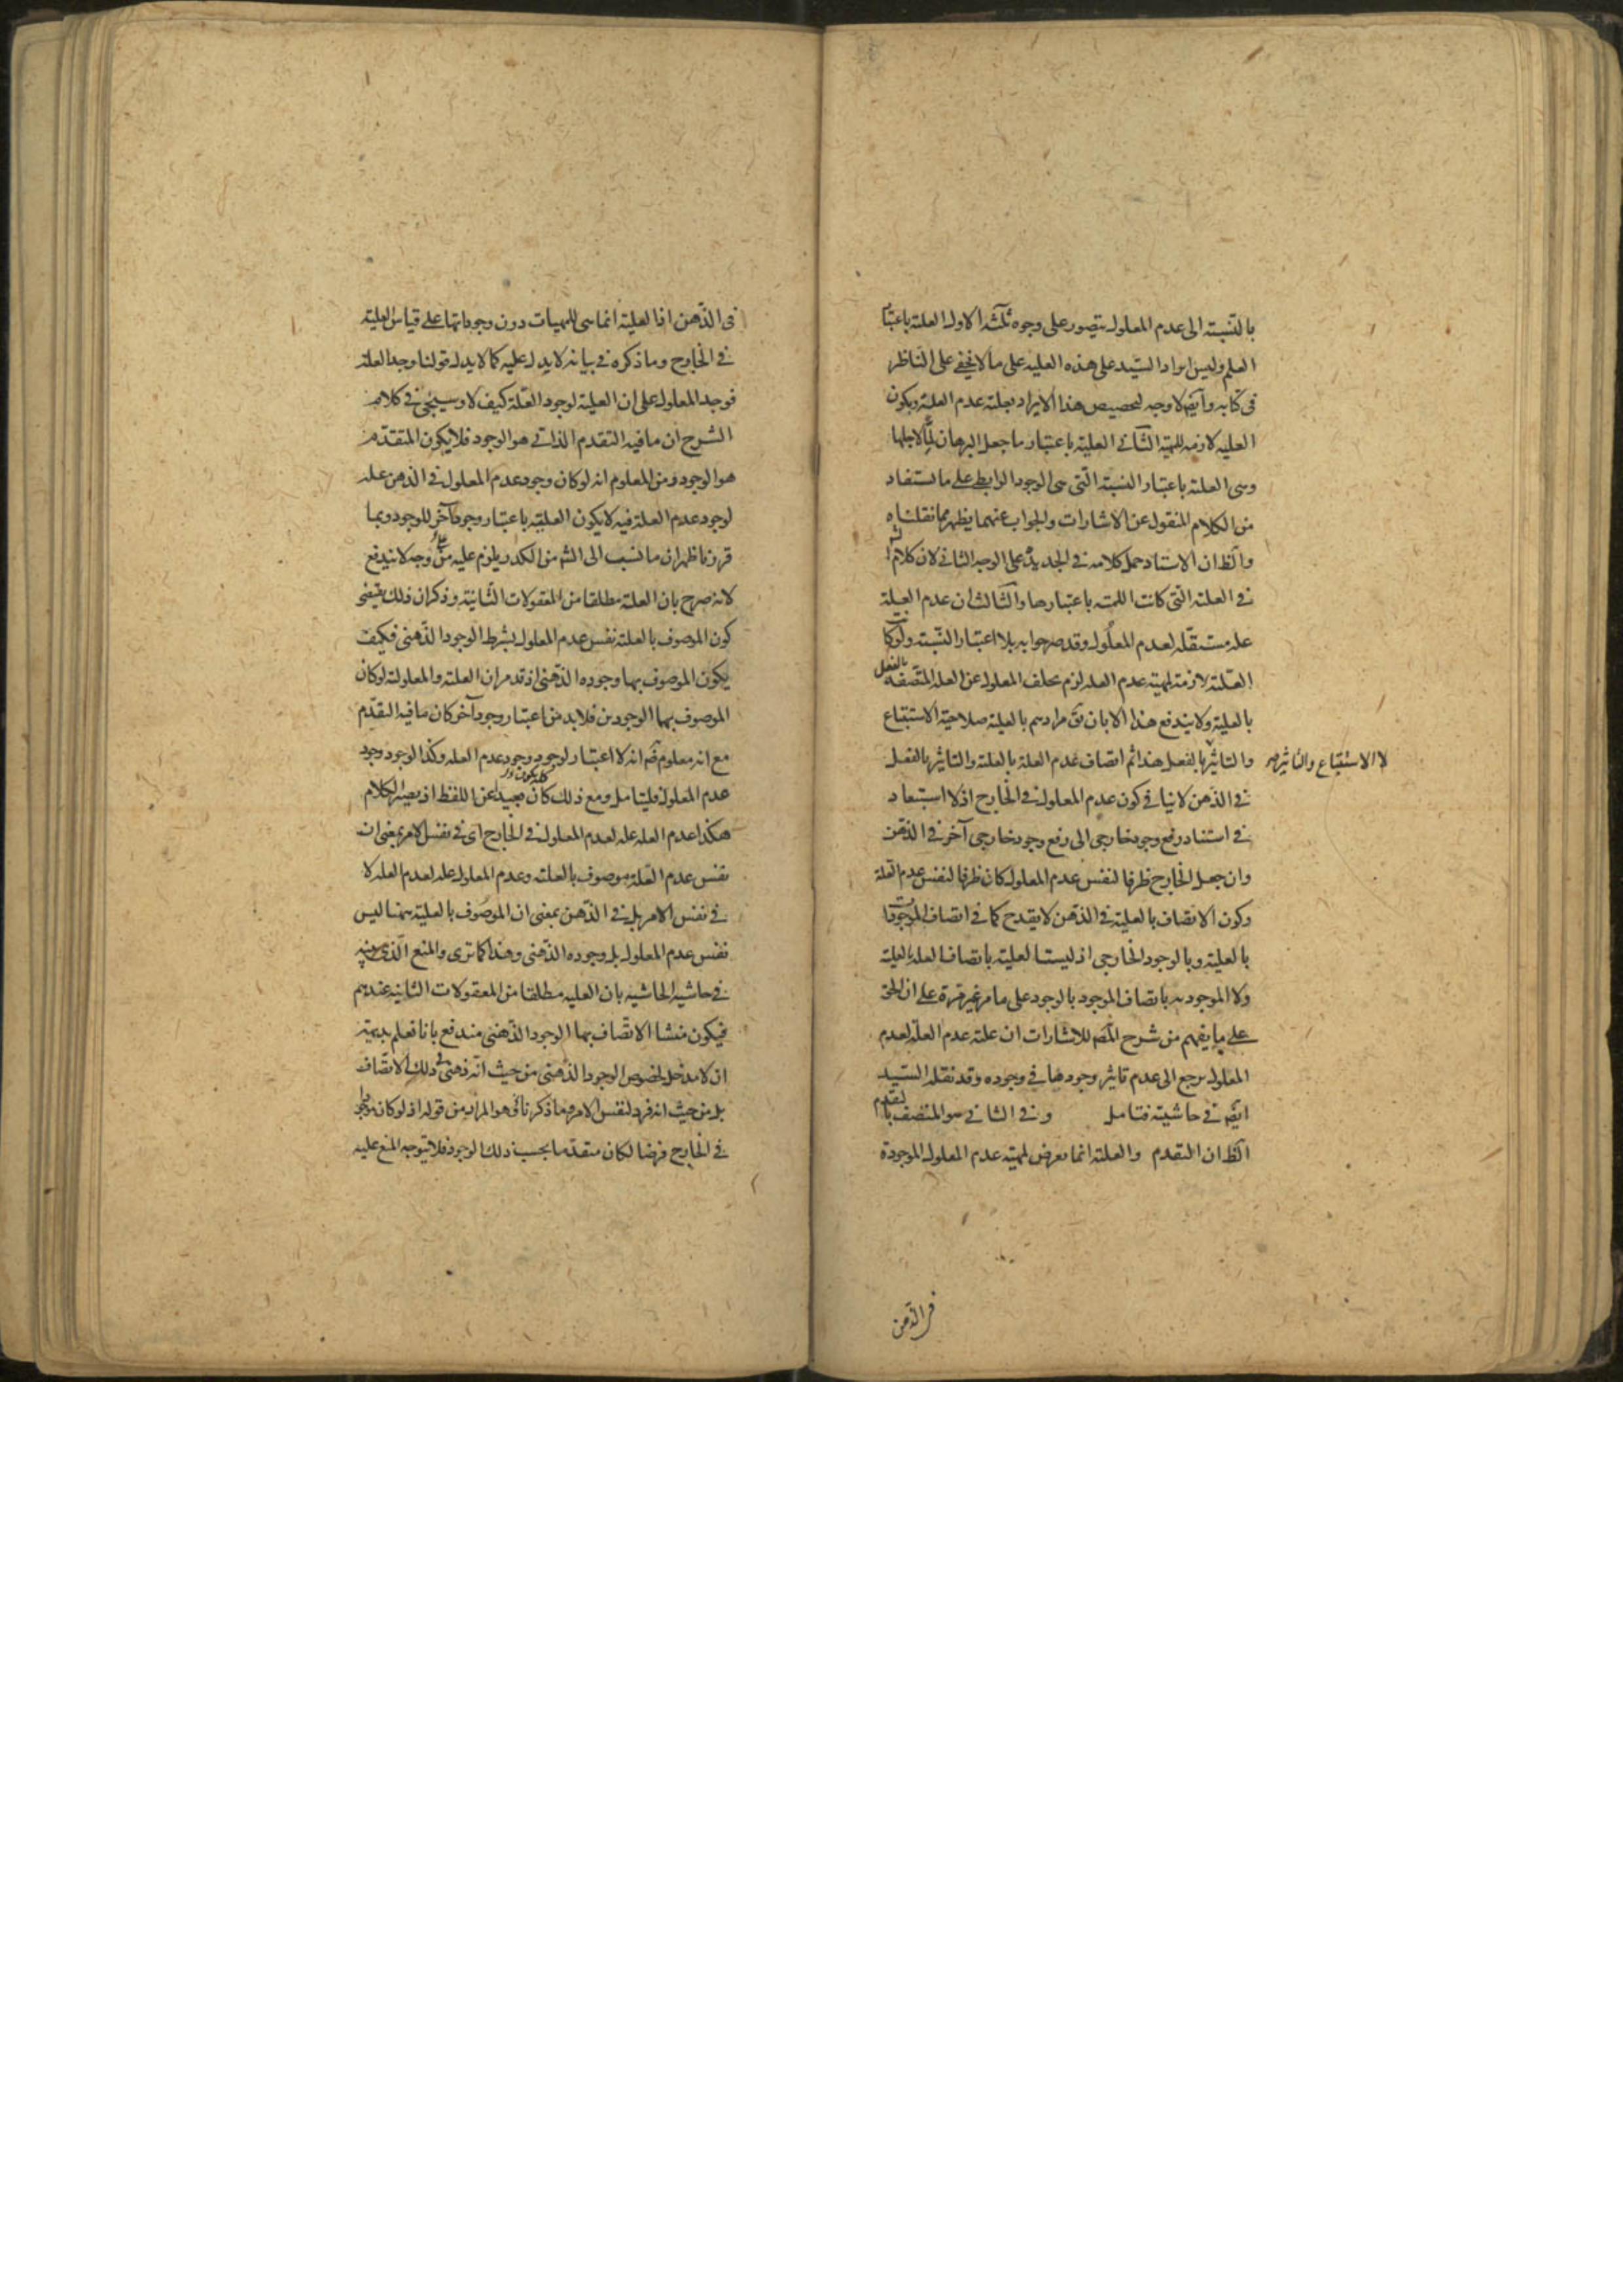 بالنسبة الى عدم المعلول يتصور على وجوه ثلثة الاول العلية باعتبار
العلم وليس ايراد السيد على هذه العليه على ما لا يخفى على الناظر
فى كتابه وايضا لا وجه لتخصيص هذا الايراد بعلية عدم العلة ويكون
العليه لازمه للمهية الثانى العلية باعتبار ما جعل البرهان لميا لاجلها
وهى العلية باعتبار النسبة التى هى الوجود الرابطى على ما يستفاد
من الكلام المنقول عن الاشارات والجواب عنهما يظهر مما نقلناه
والظ ان الاستاد حمل كلامه فى الجديد على الوجه الثانى لان كلامه
فى العلية التى كانت اللمية باعتبارها والثالث ان عدم العلة
علة مستقلة لعدم المعلول وقد صرحوا به بلا اعتبار النسبة ولو كانت
العلية لازمة لمهية عدم العلة لزم تخلف المعلول عن العلة المتصفة بالفعل
بالعلية ولا يندفع هذا الا بان يق مرادهم بالعلية صلاحية الاستتباع
لا الاستتباع والتاثير
والتاثير بالفعل هذا ثم اتصاف عدم العلة بالعلية والتاثير بالفعل
فى الذهن لا ينافى كون عدم المعلول فى الخارج اذ لا استبعاد
فى استناد رفع وجود خارجى الى رفع وجود خارجى آخر فى الذهن
وان جعل الخارج ظرفا لنفس عدم المعلول كان ظرفا لنفس عدم العلة
وكون الاتصاف بالعلية فى الذهن لا يقدح كما فى اتصاف الموجودات
بالعلية وبالوجود الخارجى اذ ليست العلية باتصاف العلة بالعلية
ولا الموجودية باتصاف الموجود بالوجود على ما مر غير مرة على ان الحق
على ما يفهم من شرح المص للاشارات ان علية عدم العلة لعدم
المعلول يرجع الى عدم تاثير وجودها فى وجوده وقد نقله السيد
ايض فى حاشيته فتامل وفى الثانى هو المتصف بالتقدم
الظ ان التقدم والعلية انما يعرض لمهية عدم المعلول الموجودة
فى الذهن
فى الذهن اذ العلية انما هى للمهيات دون وجوداتها على قياس العلية
فى الخارج وما ذكره فى بيانه لا يدل عليه كما لا يدل قولنا وجد العلة
فوجد المعلول على ان العلية لوجود العلة كيف لا وسيجئ فى كلام
الشرح ان ما فيه التقدم الذاتى هو الوجود فلا يكون المتقدم
هو الوجود ومن المعلوم انه لو كان وجود عدم المعلول فى الذهن علة
لوجود عدم العلة فيه لا يكون العلية باعتبار وجود آخر للوجود وبما
قررنا ظهر ان ما نسب الى الشه من الكدر يلزم عليه من وجه لا يندفع
لانه صرح بان العلية مطلقا من المعقولات الثانية وذكر ان ذلك يقتضى
كون الموصوف بالعلية نفس عدم المعلول بشرط الوجود الذهنى فكيف
يكون الموصوف بها وجوده الذهنى اذ قد مر ان العلية والمعلولية لو كان
الموصوف بهما الوجودين فلا بد من اعتبار وجود آخر كان ما فيه التقدم
مع انه معلوم انه لا اعتبار لوجود وجود عدم العلة وكذا لوجود وجود
عدم المعلول فليتامل ومع ذلك كان بعيدا عن اللفظ اذ يصير الكلام
هكذا عدم العلة علة لعدم المعلول فى الخارج اى فى نفس الامر بمعنى ان
نفس عدم العلة موصوف بالعلية وعدم المعلول علة لعدم العلة لا
فى نفس الامر بل فى الذهن بمعنى ان الموصوف بالعلية ههنا ليس
نفس عدم المعلول بل وجوده الذهنى وهذا كما ترى والمنع الذى
فى حاشية الحاشية بان العليه مطلقا من المعقولات الثانيه عندهم
فيكون منشا الاتصاف بها الوجود الذهنى مندفع بانا نعلم بديهة
ان لا مدخل لخصوص الوجود الذهنى من حيث انه ذهنى فى ذلك الاتصاف
بل من حيث انه فرد لنفس الامر وما ذكرنا هو المراد من قوله اذ لو كان موجودا
فى الخارج فرضا لكان متقدما بحسب ذلك الوجود فلا يتوجه المنع عليه